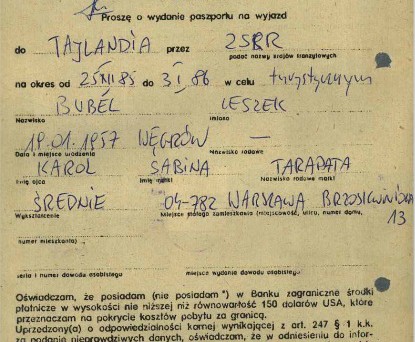 Proszę o wydanie paszportu na wyjazd
do TAJLANDIA przez ZSRR
podać nazwy krajów tranzytowych
na okres od 25 XII 85 do 3 I 86 w celu turystycznym
BUBEL LESZEK
Nazwisko Imiona
19.01.1957 WĘGRÓW —
Data i miejsce urodzenia Nazwisko rodowe
KAROL SABINA TARAPATA
Imię ojca Imię matki Nazwisko rodowe matki
ŚREDNIE 04-782 WARSZAWA BRZOSKWINIOWA
13
Wykształcenie Miejsce stałego zamieszkania (miejscowość, ulica, numer domu,
numer mieszkania)
seria i numer dowodu osobistego miejsce wydania dowodu osobistego
Oświadczam, że posiadam (nie posiadam *) w Banku zagraniczne środki
płatnicze w wysokości nie niższej niż równowartość 150 dolarów USA, które
przeznaczam na pokrycie kosztów pobytu za granicą.
Uprzedzony(a) o odpowiedzialności karnej wynikającej z art. 247 § 1 k.k.
za podanie nieprawdziwych danych, oświadczam, że w odniesieniu do infor-